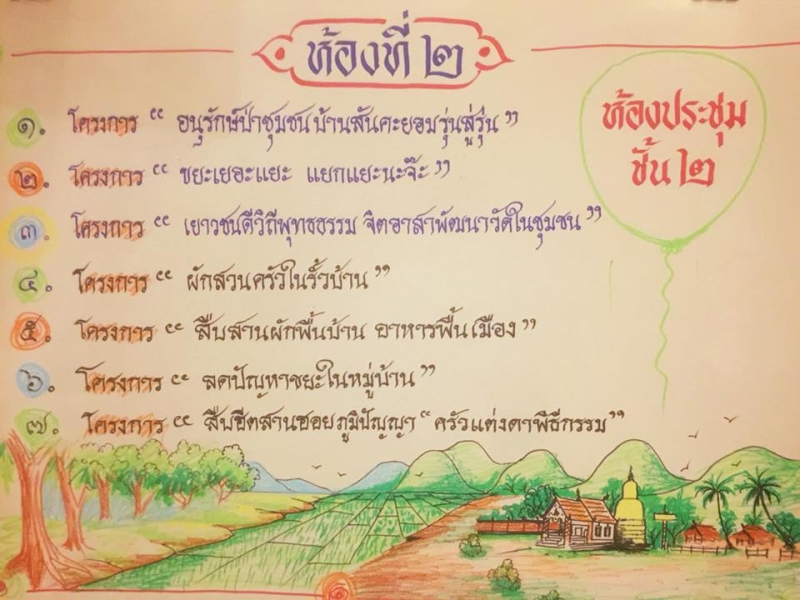 ห้องที่ ๒
ห้องประชุม
ชั้น ๒
๑. โครงการ “ อนุรักษ์ป่าชุมชนบ้านสันคะยอมรุ่นสู่รุ่น ”
๒. โครงการ “ ขยะเยอะแยะ แยกแยะนะจ๊ะ ”
๓. โครงการ “ เยาวชนดีวิถีพุทธธรรม จิตอาสาพัฒนาวัดในชุมชน ”
๔. โครงการ “ ผักสวนครัวในรั้วบ้าน ”
๕. โครงการ “ สืบสานผักพื้นบ้าน อาหารพื้นเมือง ”
๖. โครงการ “ ลดปัญหาขยะในหมู่บ้าน ”
๗. โครงการ “ สืบฮีตสานฮอยภูมิปัญญา “ ครัวแต่งดาพิธีกรรม ”